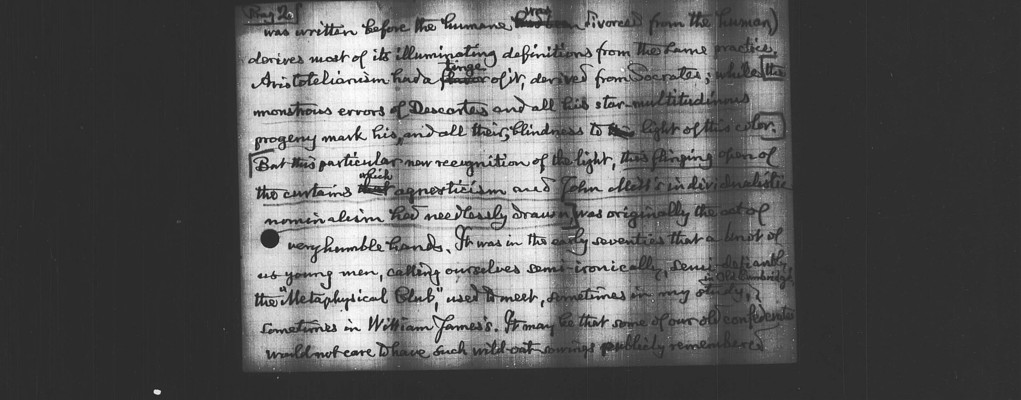 Prag 2
was written before the humane was divorced from the human)
derives most of its illuminating definitions from the same practice.
Aristotelianism had a tinge of it, derived from Socrates; while the
monstrous errors of Descartes and all his star-multitudinous
progeny mark his, and all their, blindness to light of this color.
But this particular new recognition of the light, this flinging open of
the curtains which agnosticism and John Mill's individualistic
nominalism had needlessly drawn, was originally the act of
very humble hands. It was in the early seventies that a knot of
us young men, calling ourselves semi-ironically, semi-defiantly
the "Metaphysical Club," used to meet, sometimes in my study, in Old Cambridge,
sometimes in William James's. It may be that some of our old confederates
would not care to have such wild-oat sowings publicly remembered